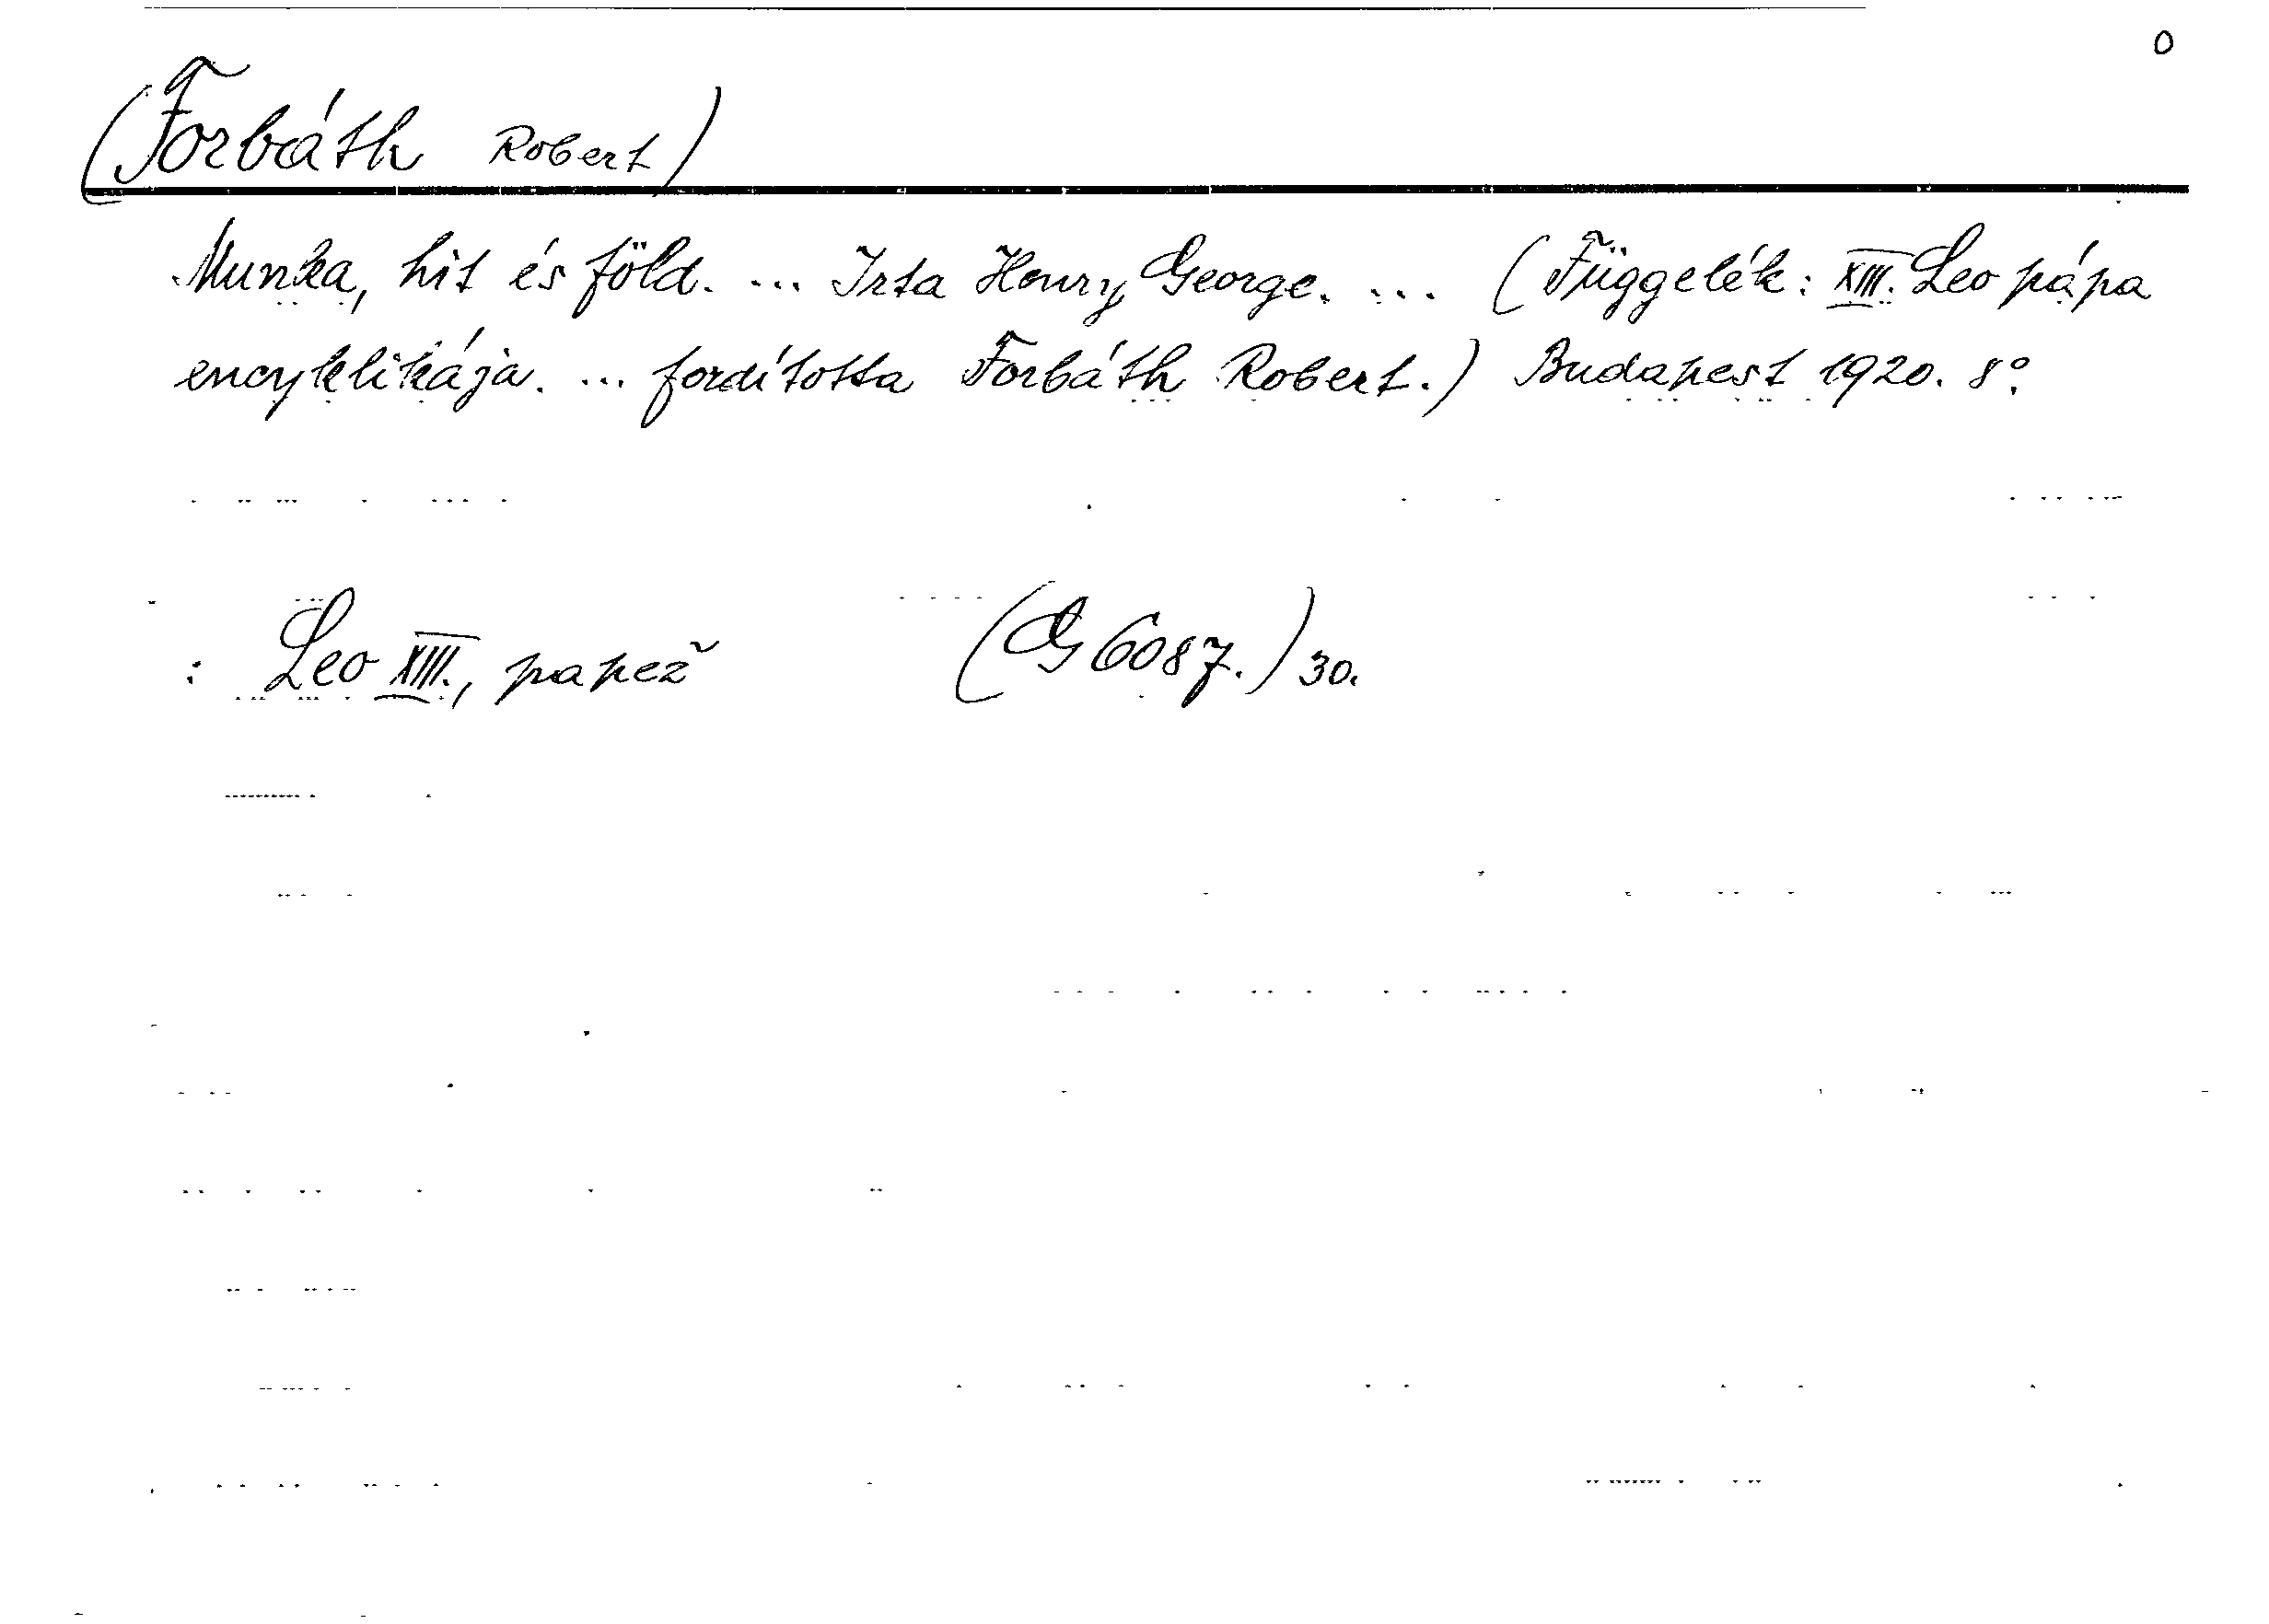 0
(Forbáth Robert)
Munka, hit és föld. ... Irta Henry George. ... (Függelék: XIII. Leo pápa
encyklikája. ... fordította Forbáth Robert.) Budapest 1920. 8°.
: Leo XIII., papež (G 6087.) 30.